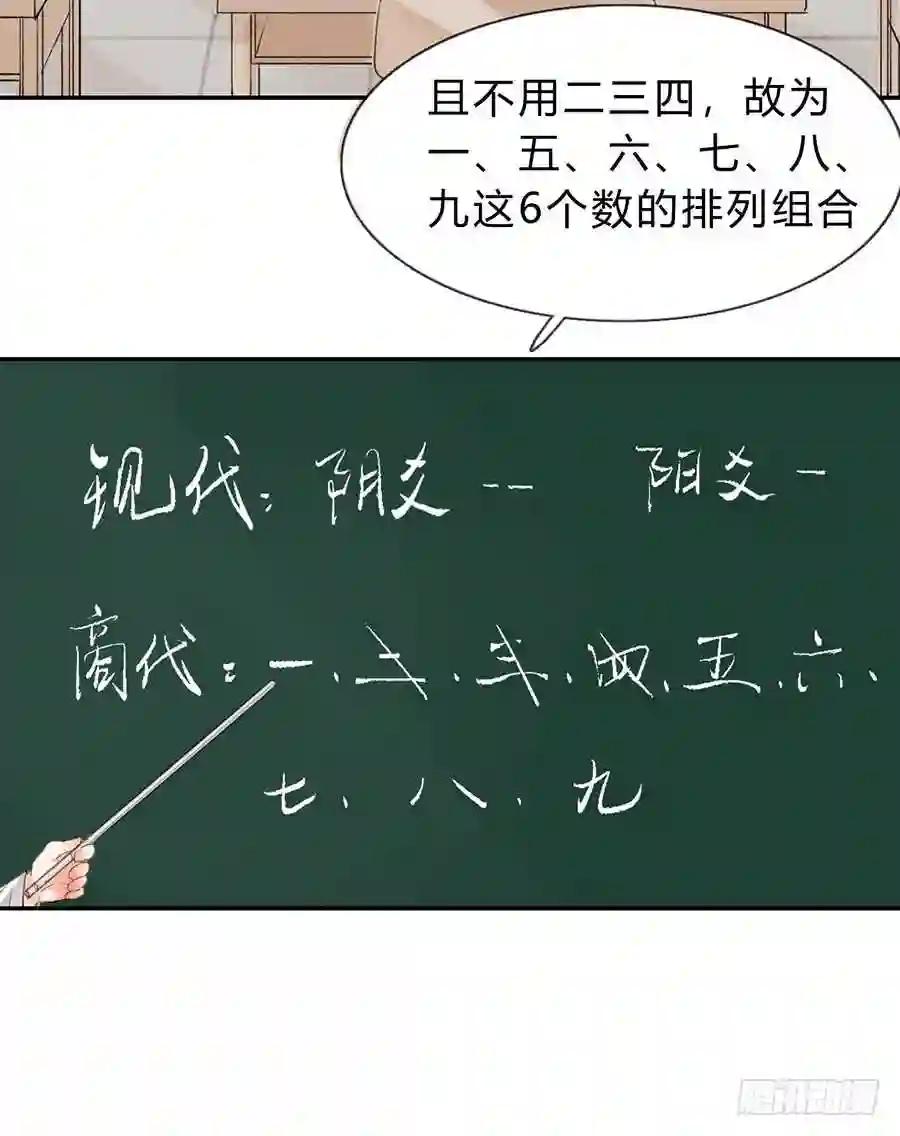 且不用二三四，故为
一、五、六、七、八、
九这6个数的排列组合
现代：阴爻-- 阳爻-
商代：一、弍、弎、四、五、六、
七、八、九